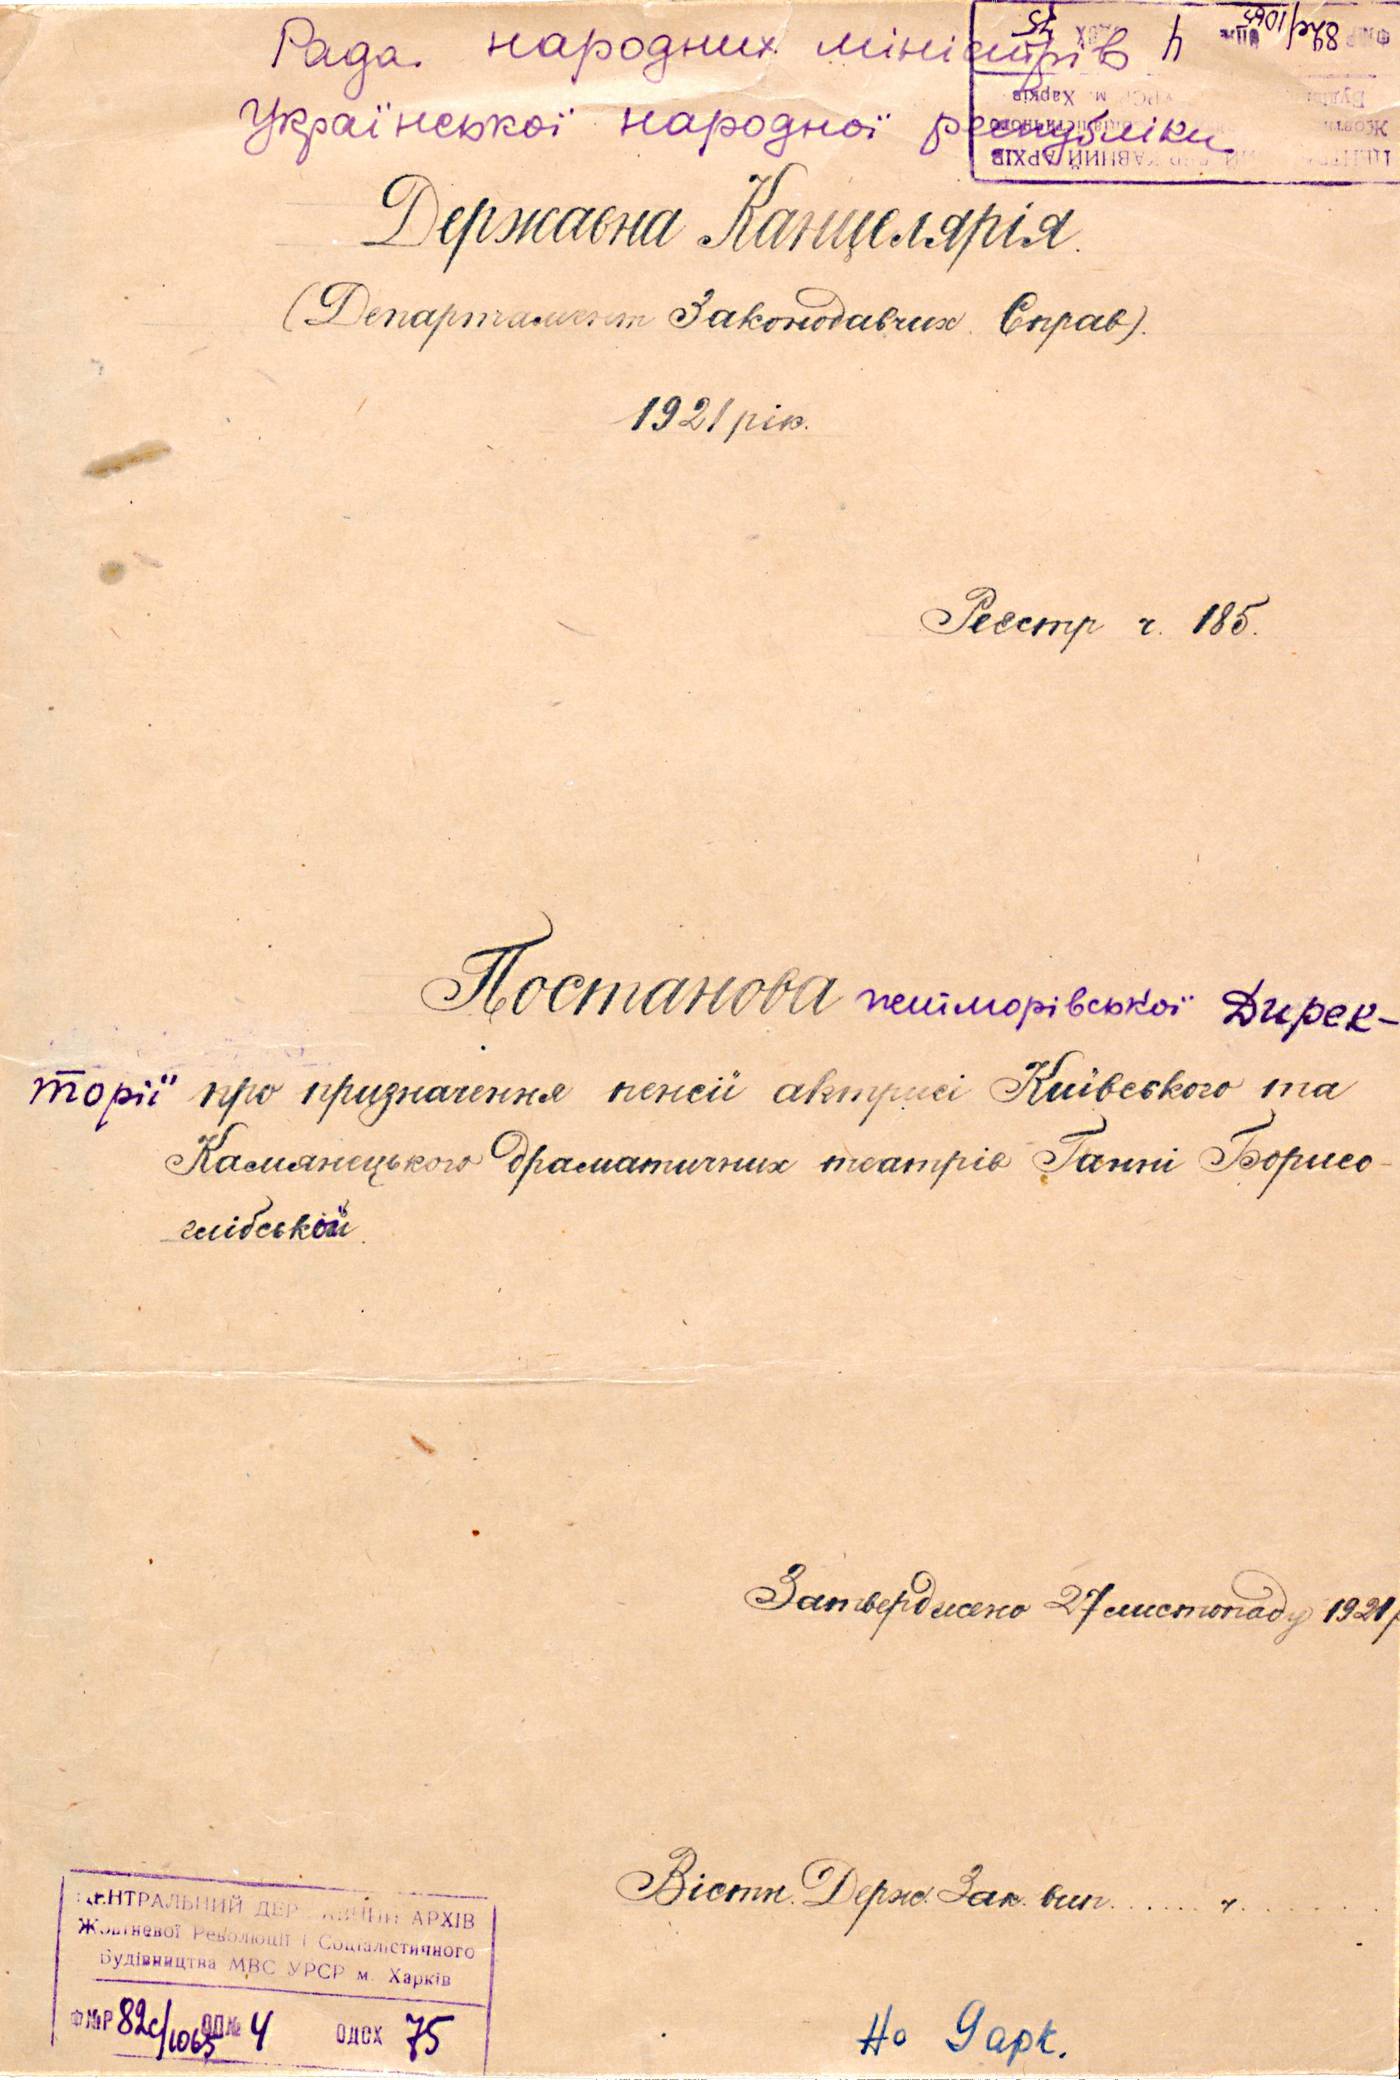 Рада народних міністрів
Української народної республіки
Державна Канцелярія.
(Департамент Законодавчих Справ).
1921 рік.
Реєстр ч. 185.
Постанова петлюрівської Дирек-
торії про призначення пенсії актрисі Київського та
Камянецького драматичних театрів Ганні Борисо-
глібській.
Затверджено 27 листопаду 1921 р
Вістн. Держ. Зак. вип. ...... ч. ......
ЦЕНТРАЛЬНИЙ ДЕРЖАВНИЙ АРХІВ
Жовтневої Революції і Соціалістичного
Будівництва МВС УРСР м. Харків
Ф№Р 82с/1065 ОП№ 4 ОДСХ 75
9 арк.